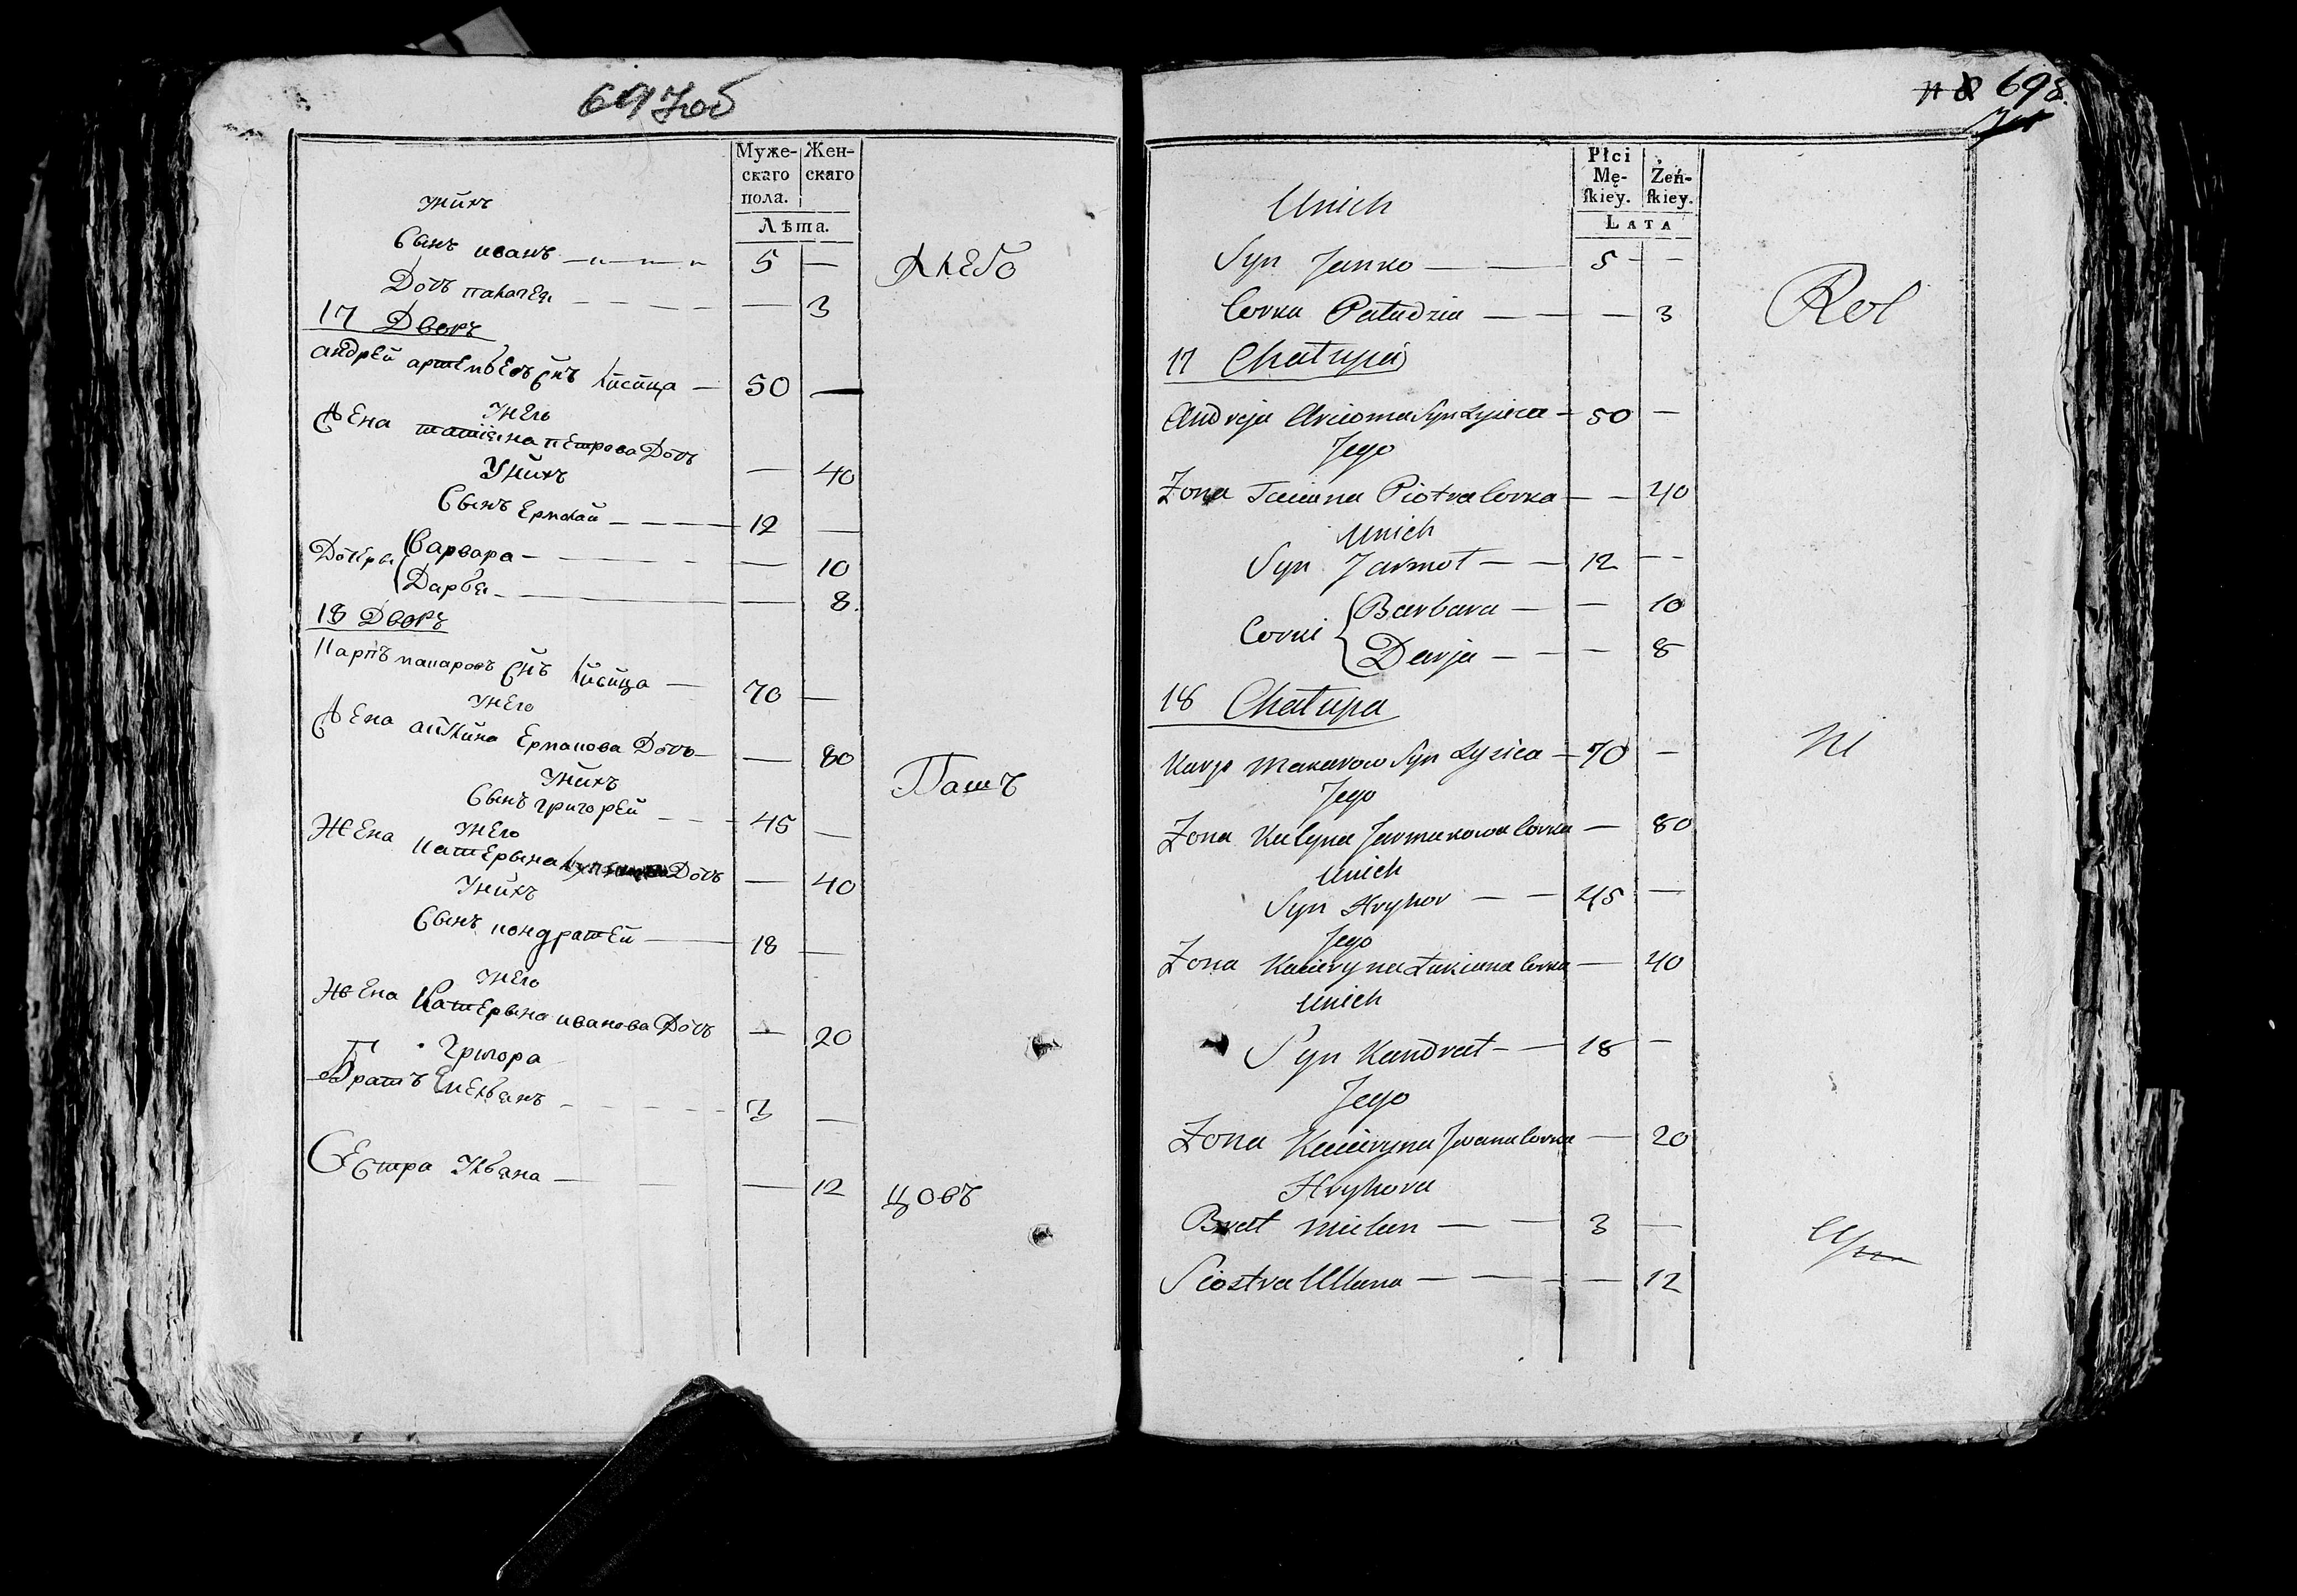 697об
Муже- Жен-
скаго скаго
пола.
Лѣта.
унихъ
Сынъ иванъ 5 —
хлебо
Дочь палагея — 3
17 Дворъ
андрей артемьевъ Снъ лисица — 50 —
унего
жена татіяна петрова Дочь — 40
унихъ
Сынъ Ермолай — 12 —
Дочери Варвара — — 10
Дарья — — 8.
18 Дворъ
Карпъ макаровъ Снъ лисица — 70 —
унего
жена акилина Ермакова Дочь — — 80
унихъ
Пашъ
Сынъ григорей — 45 —
унего
Жена Катерына Дочь — 40
унихъ
Сынъ кондратей — 18 —
унего
Жена Катерына иванова Дочь — 20
Григора
Братъ 3 —
Сестра Уляна — — 12
цовъ
698.
Płci Żeń-
Mę- ſkiey.
ſkiey.
LATA
Unich
Syn Janko — 5 —
Corka Paładzia — — 3
Rol
17 Chałupa
Andreja Arcioma Syn Lysica — 50 —
Jego
Zona Taciana Piotra Corka — — 40
Unich
Syn Jarmoł — 12 —
Corki Barbara — — 10
Darja — — 8
18 Chałupa
Karp Makarow Syn Lysica — 70 —
ni
Jego
Zona Kulyna Jarmakowa Corka — 80
Unich
Syn Hryhor — 45 —
Jego
Zona Kacieryna Łukiana Corka — 40
Unich
Syn Kandrat — 18 —
Jego
Zona Kacieryna Iwana Corka — 20
Hryhora
Brat Mielan — 3 —
Siostra Ullana — — 12